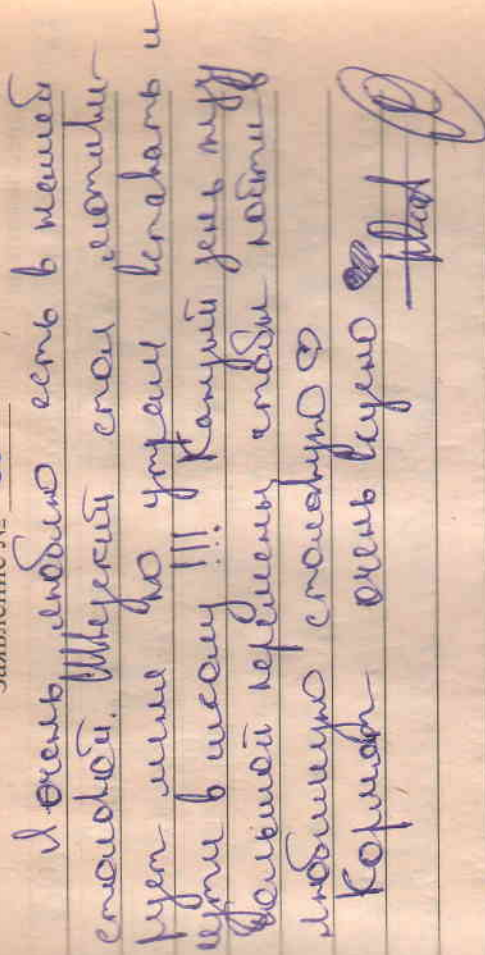 Заявление №
Я очень люблю есть в нашей
столовой. Шведский стол мотиви-
рует меня по утрам вставать и
идти в школу !!! Каждый день жду
большой перемены чтобы пойти в
любимую столовую ♡
Кормят очень вкусно ♥